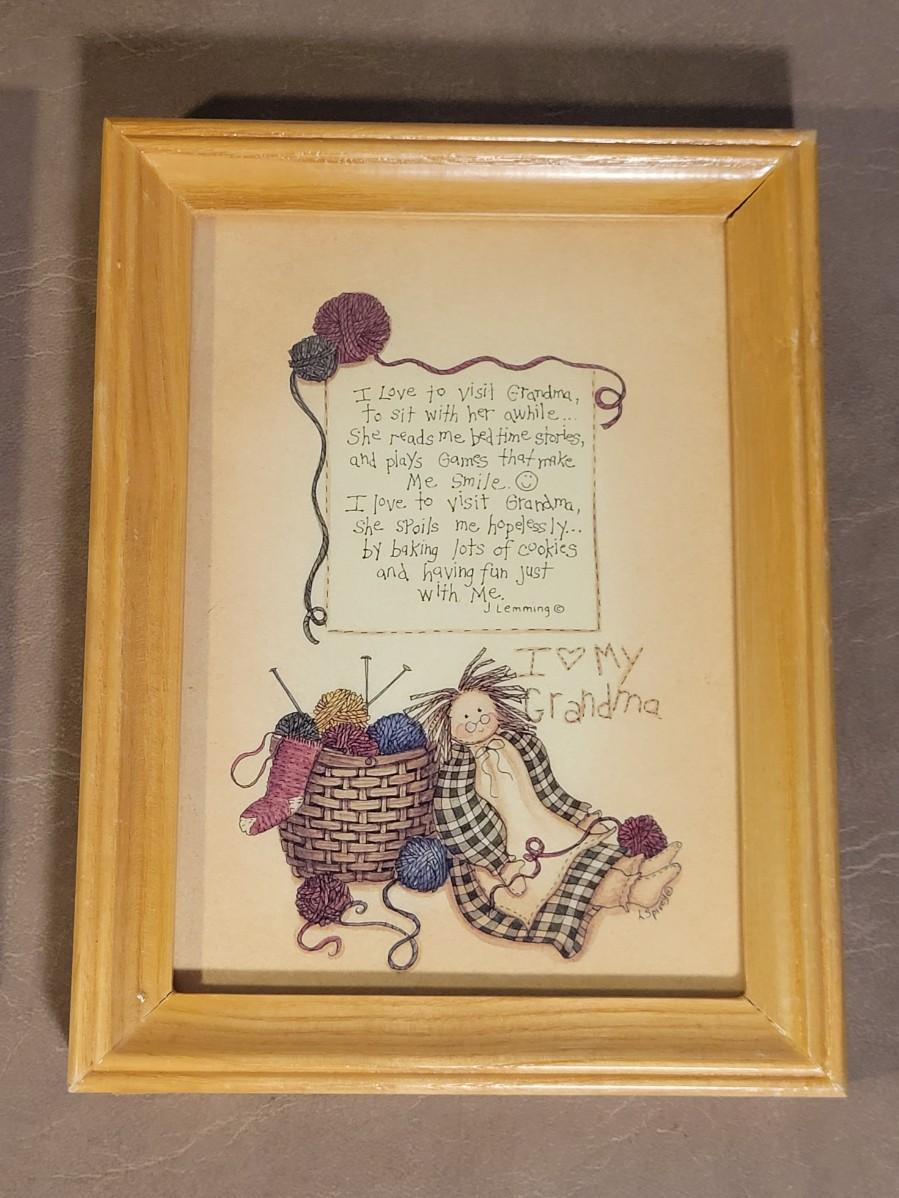 I Love to visit Grandma,
to sit with her awhile...
She reads me bedtime stories,
and plays Games that make
Me Smile. ☺
I love to visit Grandma,
She spoils me hopelessly...
by baking lots of cookies
and having fun just
with Me.
J Lemming ©
I ♡ My
Grandma